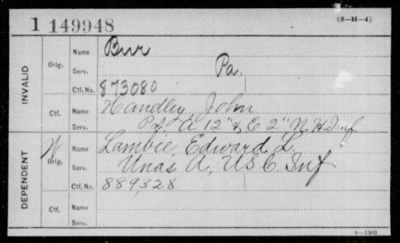 1 149948
(3-11-4)
INVALID
Orig.
Name Burr
Serv. Pa.
Ctf. No. 873080
Ctf.
Name Handley, John
Serv. Pvt. A 12" & E 2" N.H. Inf.
DEPENDENT
W
Orig.
Name Lambie, Edward L.
Serv. Unas. A, U S C Inf
Ctf. No. 889,328
Ctf.
Name
Serv.